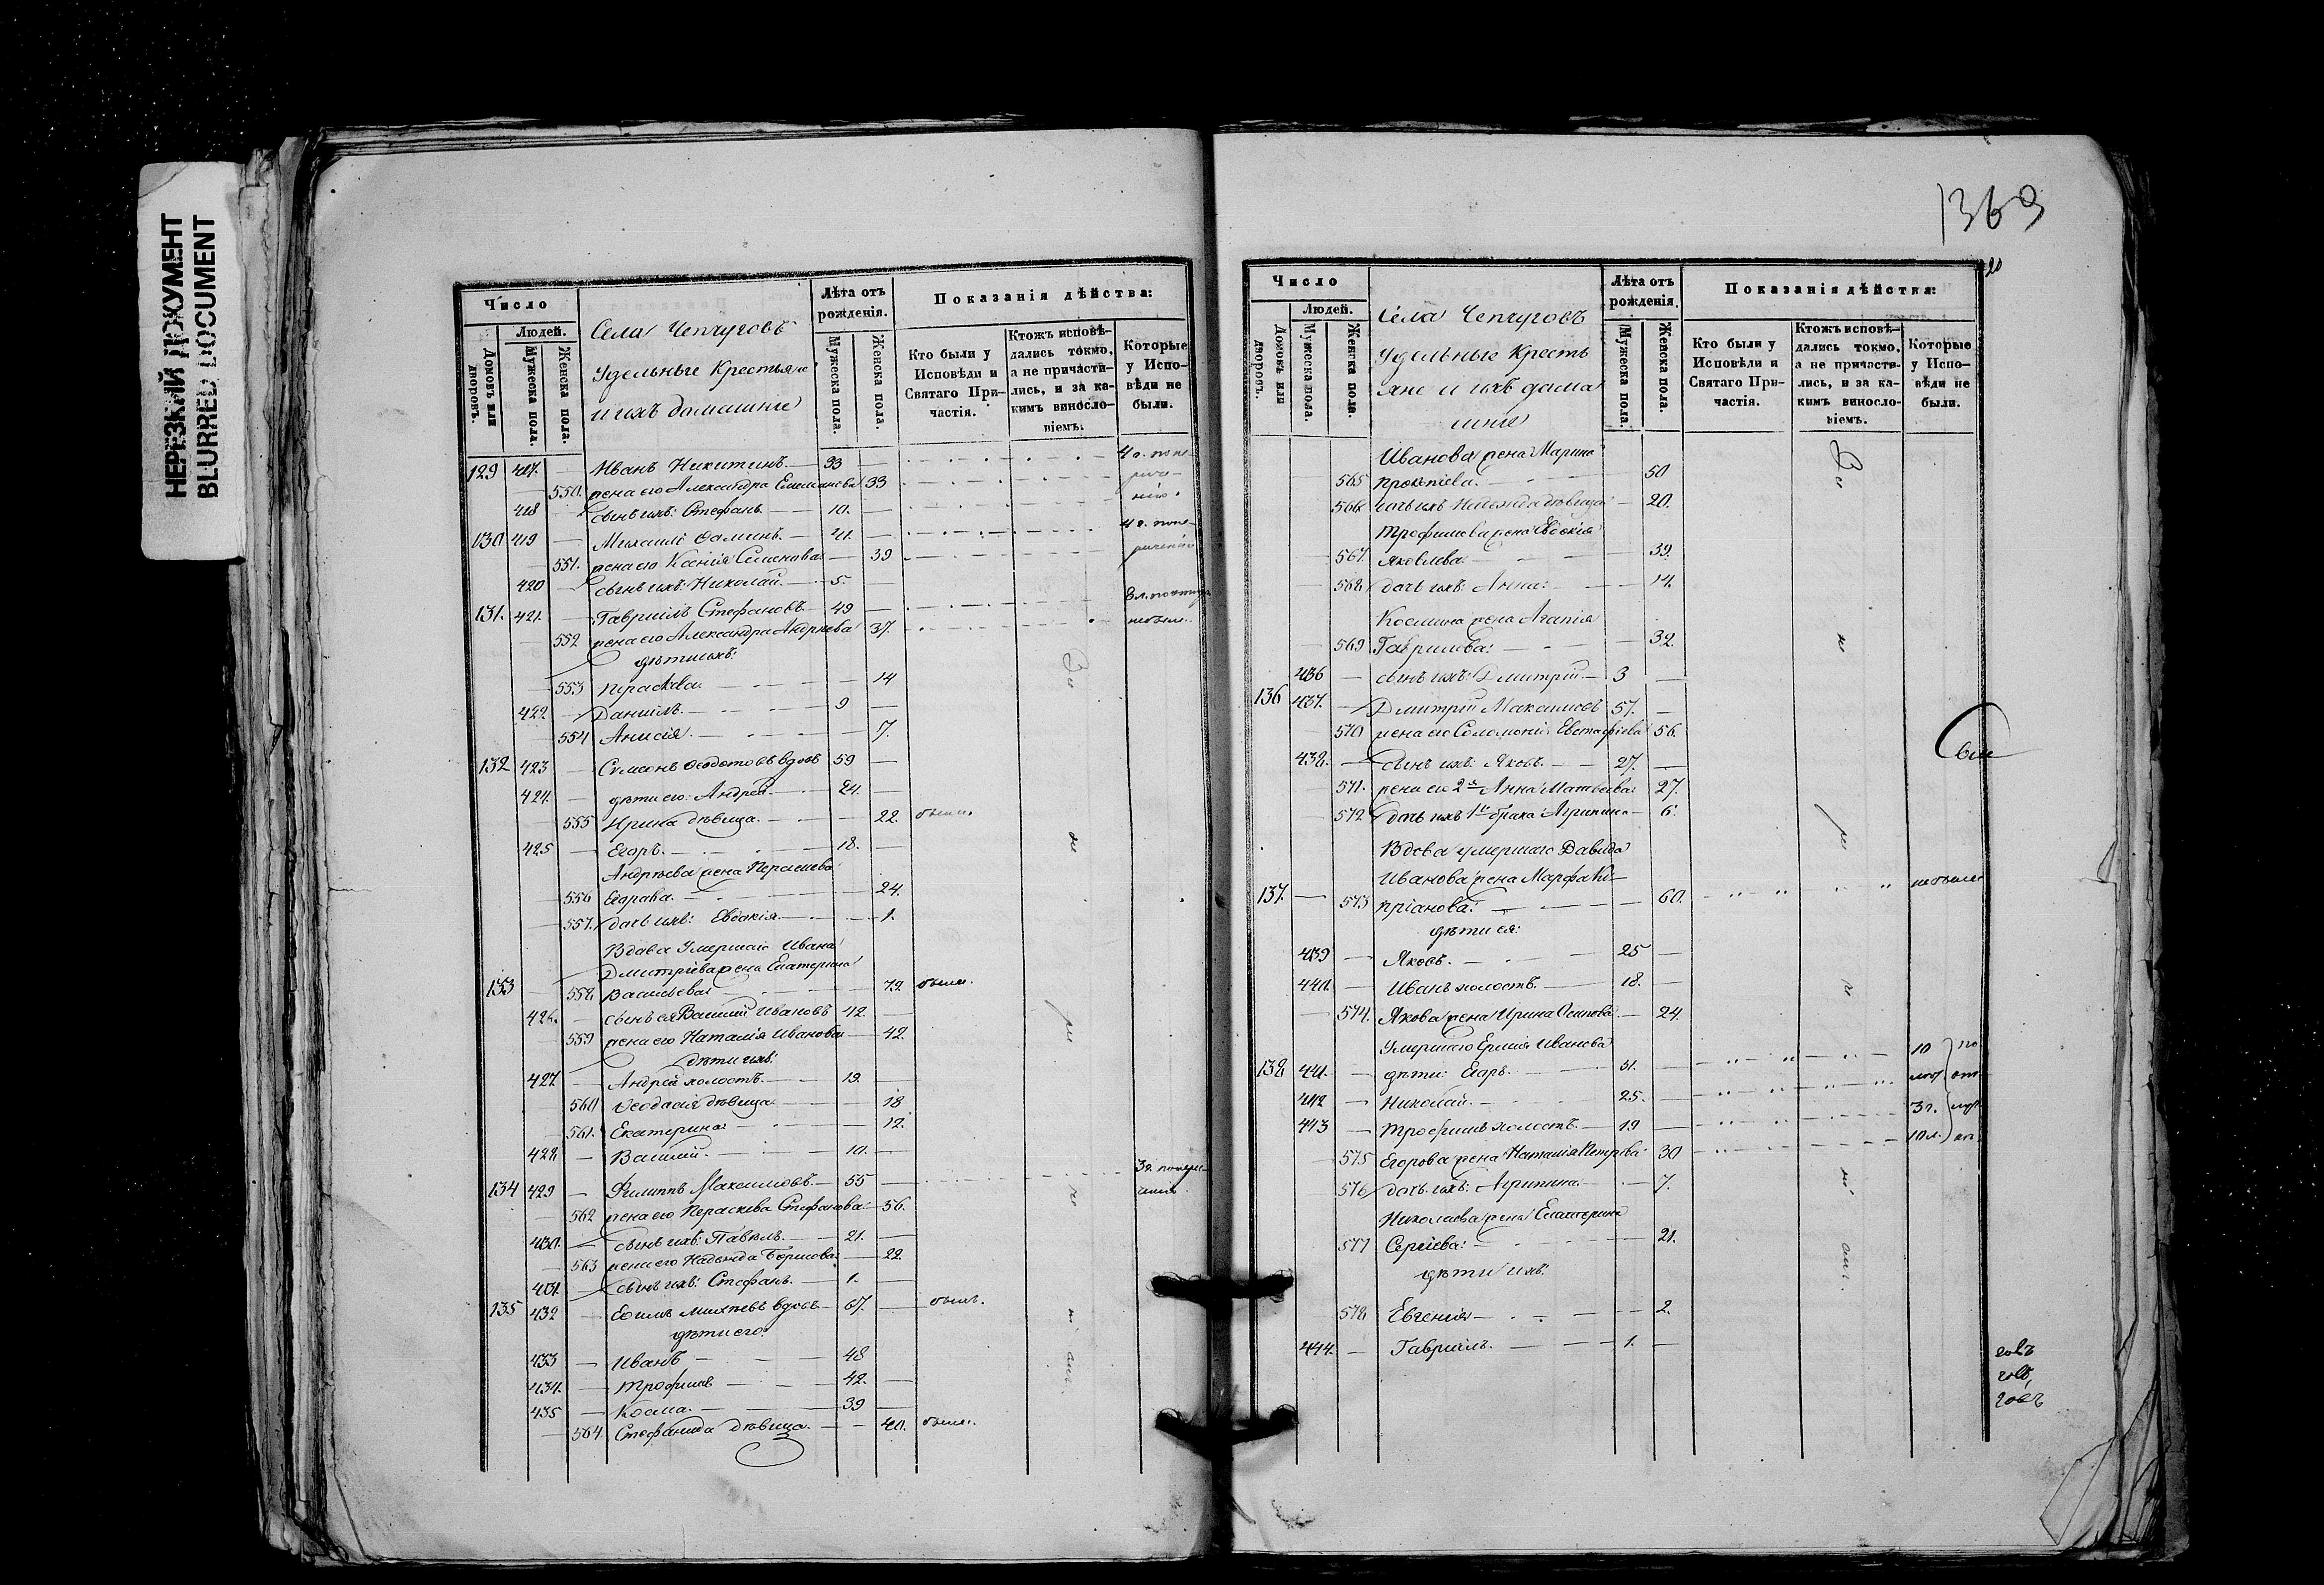 НЕРЕЗКИЙ ДОКУМЕНТ
BLURRED DOCUMENT
Число
Людей.
Домовъ или дворовъ.
Мужеска пола.
Женска пола.
Села Чепчуговъ
Удельные Крестьяне
и ихъ домашние
Лѣта отъ рожденія.
Мужеска пола.
Женска пола.
Показанія дѣйства:
Кто были у Исповѣди и Святаго Причастія.
Ктожъ исповѣдались токмо, а не причастились, и за какимъ винословіемъ.
Которые у Исповѣди не были.
129 417. — Иванъ Никитинъ. — 33 —
550. жена его Александра Емельянова 33
418 сынъ ихъ: Стефанъ — 10. —
130 419 — Михаилъ Фоминъ. — 41. —
551. жена его Ксенія Семенова: — 39
420 — сынъ ихъ: Николай. — 5. —
131. 421. — Гавріилъ Стефановъ. — 49 —
552 жена его Александра Андреева 37.
дѣти ихъ:
553 Параскева. — 14
422 — Даніилъ. — 9 —
554 Анисія. — 7.
132 423 — Сѵмеонъ Ѳеодотовъ вдовъ 59 —
424. — дѣти его: Андрей. — 24. —
555 Ирина дѣвица. — 22. были.
425 — Егоръ. — 18. —
Андреева жена Параскева
556 — 24.
557. дочь ихъ: Евдокія. — 1.
Вдова Умершаго Ивана
Дмитріева жена Екатерина
133 558 Васильева — 72. была.
426. — сынъ ея Василій Ивановъ 42. —
559 жена его Наталія Иванова — 42.
дѣти ихъ:
427. — Андрей холостъ. — 19. —
560 Ѳеодосія дѣвица. — 18
561. Екатерина: — 12.
428 — Василій. — 10. —
134 429 — Филиппъ Максимовъ. — 55 —
562 жена его Параскева Стефанова: — 56.
430. — сынъ ихъ: Павелъ. — 21. —
563 жена его Надежда Борисова: — 22
431. — сынъ ихъ: Стефанъ. — 1. —
135 432 — Ефимъ вдовъ — 67. — былъ.
дѣти его:
433 — Иванъ — 48
434. — Трофимъ — 42. —
435 — Косма. — 39 —
564 Стефанида дѣвица. — 40. была.
1369
Число
Людей.
Домовъ или дворовъ.
Мужеска пола.
Женска пола.
Села Чепчуговъ
Удельные Кресть
яне и ихъ дома
шніе
Лѣта отъ рожденія.
Мужеска пола.
Женска пола.
Показанія дѣйствія:
Кто были у Исповѣди и Святаго Причастія.
Ктожъ исповѣдались токмо, а не причастились, и за какимъ винословіемъ.
Которые у Исповѣди не были.
Иванова жена Марина
565 Прокпіева: — 50
566 дочь ихъ Надежда дѣвица — 20.
Трофимова жена Евдокія
567. Яковлева: — 39.
568 дочь ихъ: Анна: — 14.
Косьмина жена Агапія
569 Гаврилева: — 32.
436 — сынъ ихъ: Дмитрій. — 3 —
136 437. — Дмитрій Максимовъ 57. —
570 жена его Соломонія Евстафіева 56.
438. — сынъ ихъ: Яковъ. — 27. —
571. жена его 2я Анна Матвеева: 27.
572 дочь ихъ 1го брака Агрипина — 6.
Вдова умершаго Давида
Иванова жена Марфа Ки-
137. — 573 пріанова: — 60. не была
дѣти ея:
439 — Яковъ. — 25 —
440. — Иванъ холостъ. — 18. —
574. Якова жена Ирина Осипова — 24.
Умершаго Ермила Иванова
138 441. — дѣти: Егоръ. — 31. — 10
442 — Николай. — 25. —
443 — Трофимъ холостъ. — 19 — 3 г.
575 Егорова жена Наталія Петрова 30 10 л.
576 дочь ихъ: Агрипина. — 7.
Николаева жена Екатерина
577 Сергіева: — 21.
дѣти ихъ:
578 Евгенія — 2.
444. — Гавріилъ. — 1. —